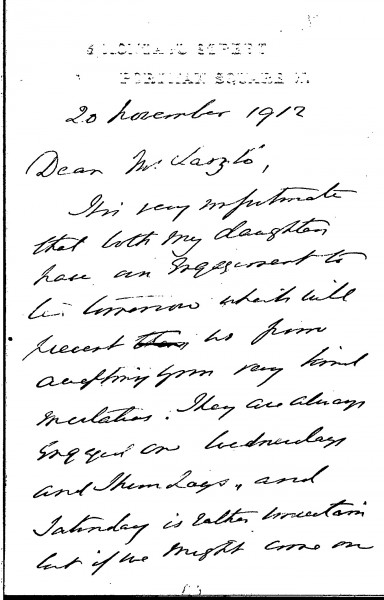 6 MONTAGU STREET
PORTMAN SQUARE W.
20 November 1912
Dear Mr László,
It is very unfortunate
that both my daughters
have an engagement to
tomorrow which will
prevent us from
accepting your very kind
invitation. They are always
engaged on Wednesdays
and Thursdays, and
Saturday is rather uncertain
but if we might come on